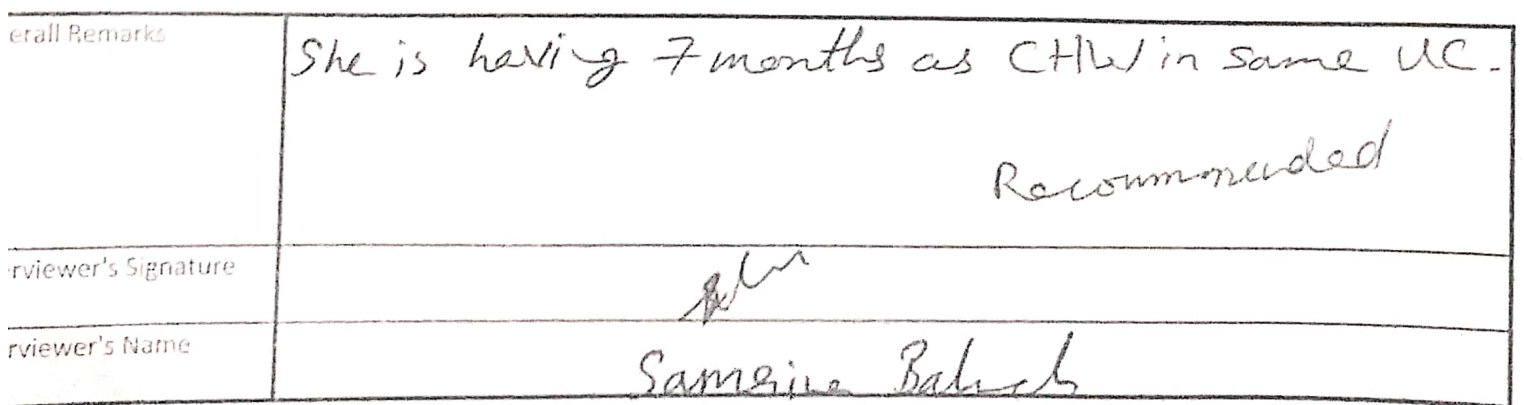 erall Remarks
She is having 7 months as CHW in same UC.
Recommended
rviewer's Signature
rviewer's Name
Baluch